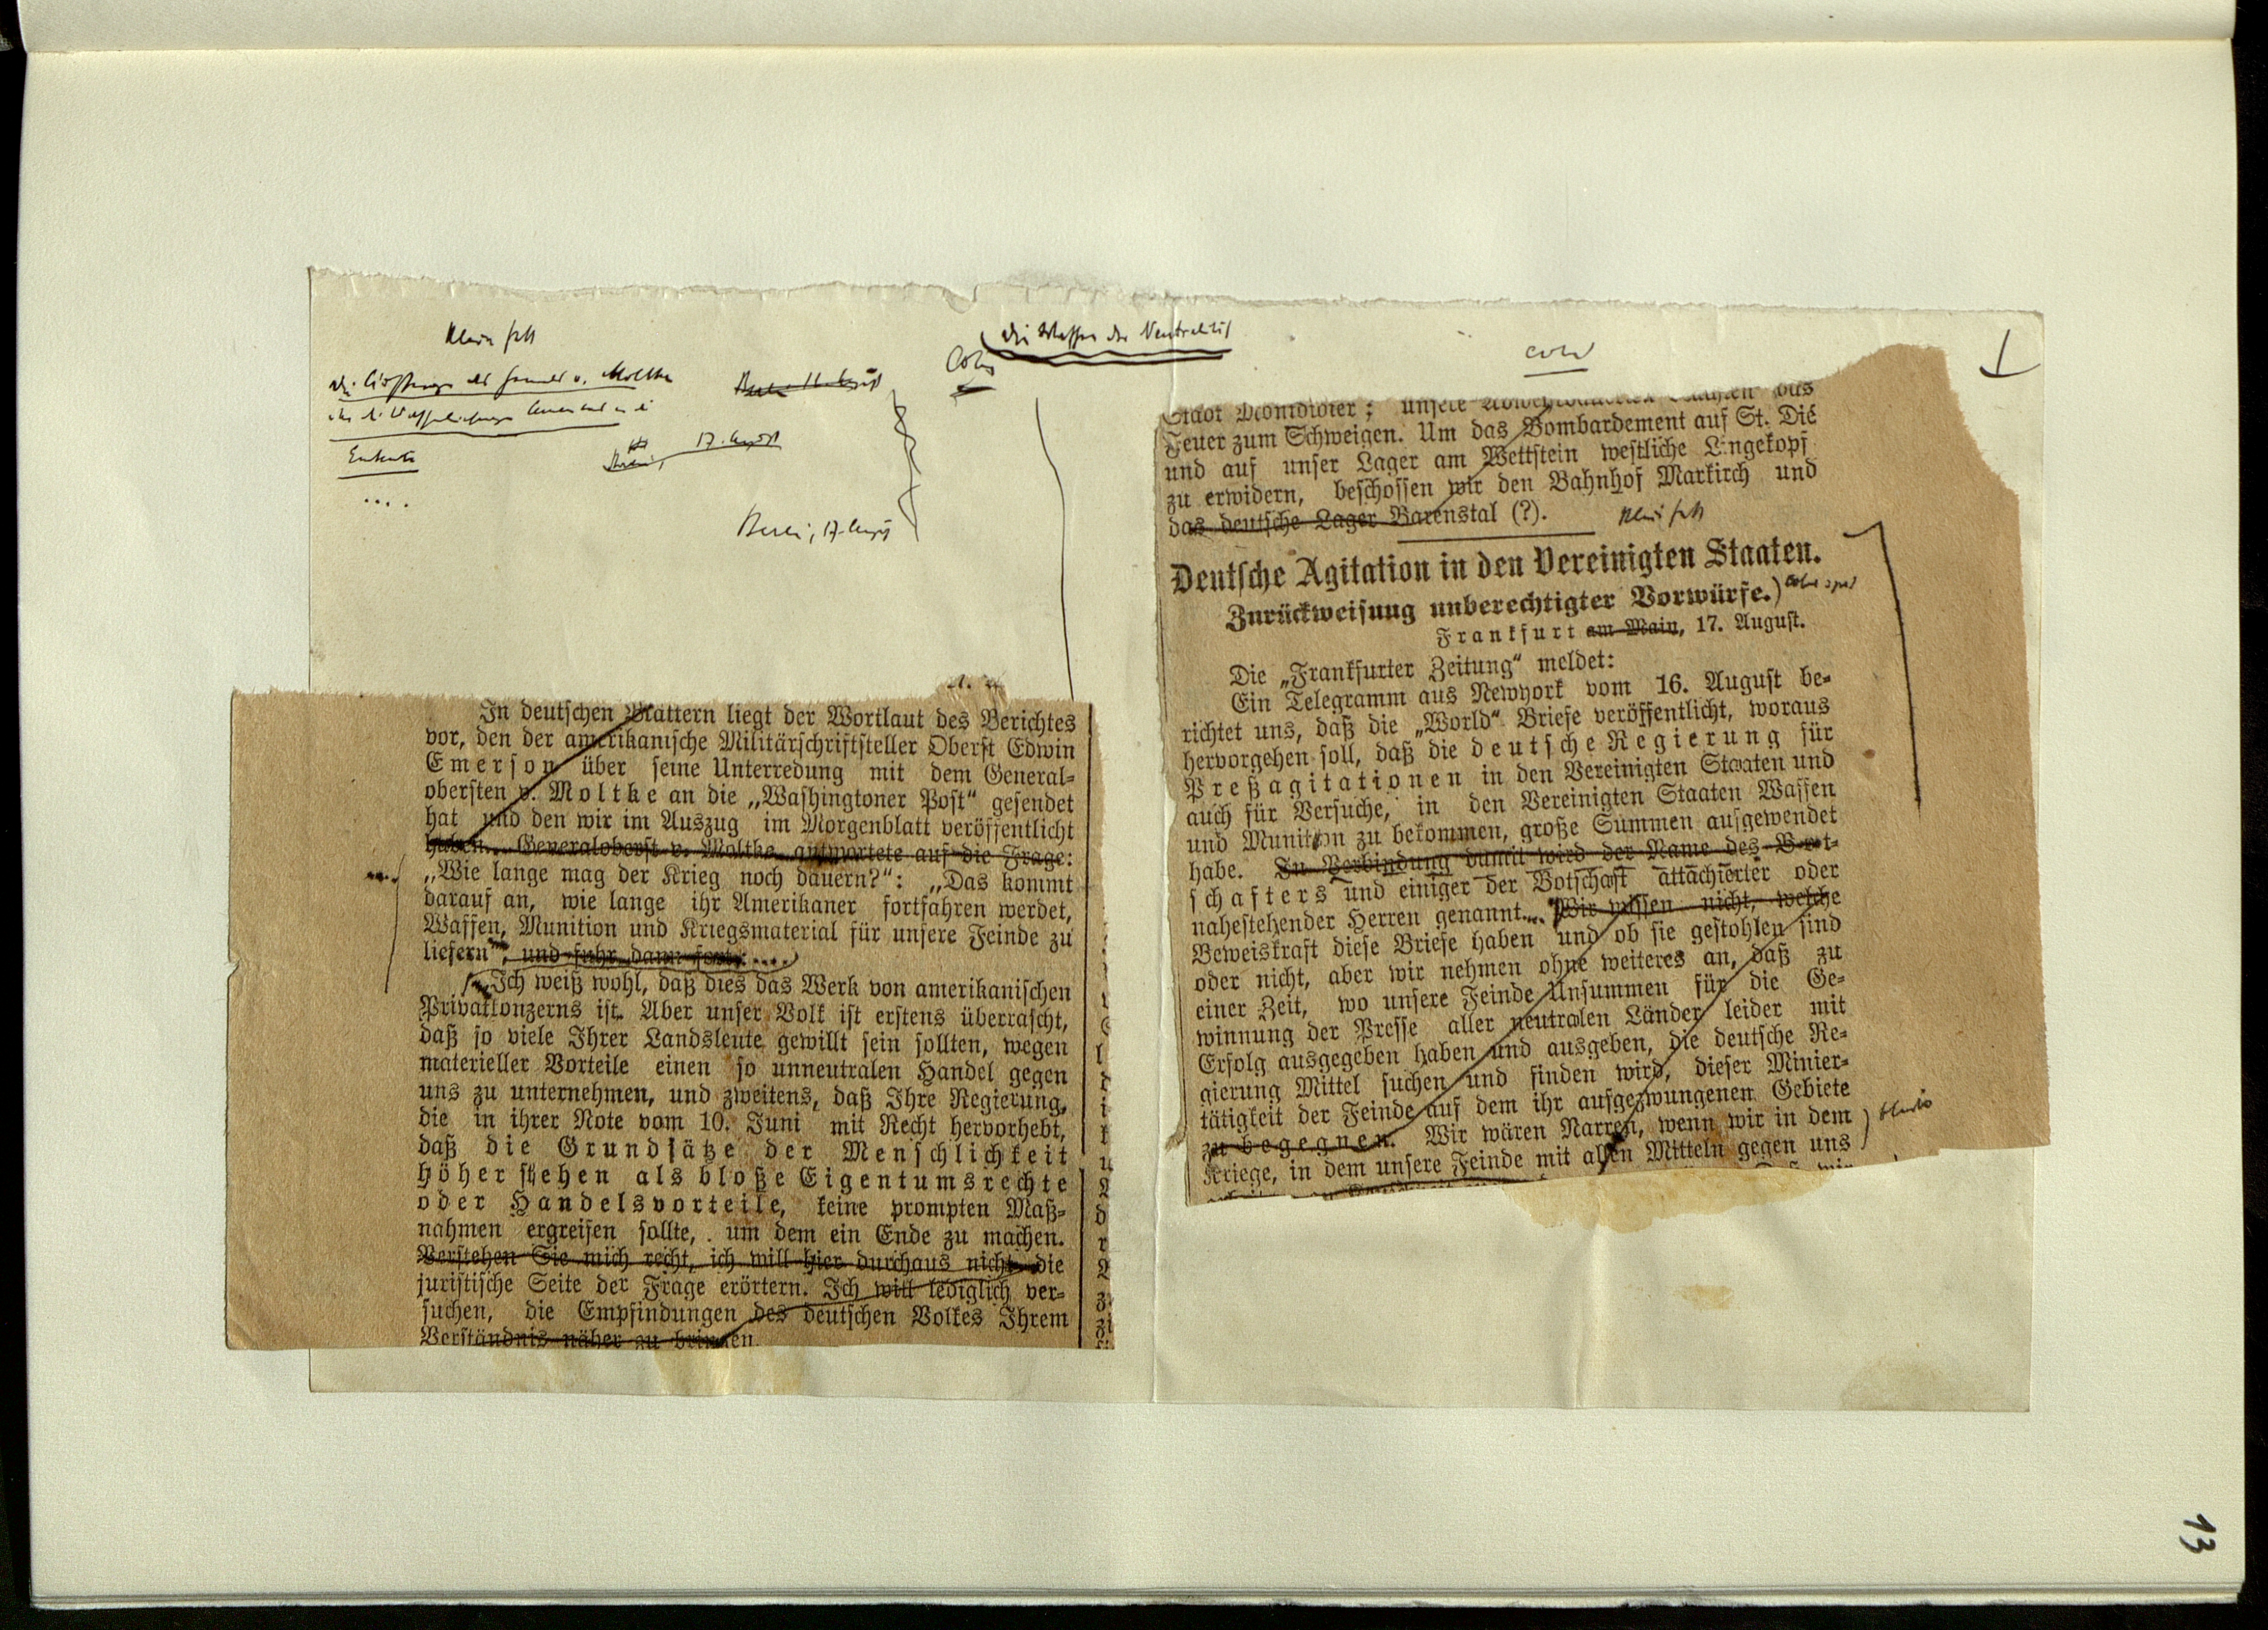 Klein fett
Die Waffen der Neutralität
v. Moltke
Entente
....
17. August
Berlin, 17. August
In deutschen Blättern liegt der Wortlaut des Berichtes
vor, den der amerikanische Militärschriftsteller Oberst Edwin
Emerson über seine Unterredung mit dem General-
obersten v. Moltke an die „Washingtoner Post“ gesendet
hat und den wir im Auszug im Morgenblatt veröffentlicht
haben. Generaloberst v. Moltke antwortete auf die Frage:
„Wie lange mag der Krieg noch dauern?“: „Das kommt
darauf an, wie lange ihr Amerikaner fortfahren werdet,
Waffen, Munition und Kriegsmaterial für unsere Feinde zu
liefern“, und fuhr dann fort: ....
„Ich weiß wohl, daß dies das Werk von amerikanischen
Privatkonzerns ist. Aber unser Volk ist erstens überrascht,
daß so viele Ihrer Landsleute gewillt sein sollten, wegen
materieller Vorteile einen so unneutralen Handel gegen
uns zu unternehmen, und zweitens, daß Ihre Regierung,
die in ihrer Note vom 10. Juni mit Recht hervorhebt,
daß die Grundsätze der Menschlichkeit
höher stehen als bloße Eigentumsrechte
oder Handelsvorteile, keine prompten Maß-
nahmen ergreifen sollte, um dem ein Ende zu machen.
Verstehen Sie mich recht, ich will hier durchaus nicht die
juristische Seite der Frage erörtern. Ich will lediglich ver-
suchen, die Empfindungen des deutschen Volkes Ihrem
Verständnis näher zu bringen.
Stadt Montdidier; unsere das
Feuer zum Schweigen. Um das Bombardement auf St. Dié
und auf unser Lager am Wettstein westliche Lingekopf
zu erwidern, beschossen wir den Bahnhof Markirch und
das deutsche Lager Barenstal (?).
Klein fett
Deutsche Agitation in den Vereinigten Staaten.
Zurückweisung unberechtigter Vorwürfe.)
Frankfurt am Main, 17. August.
Die „Frankfurter Zeitung“ meldet:
Ein Telegramm aus Newyork vom 16. August be-
richtet uns, daß die „World“ Briefe veröffentlicht, woraus
hervorgehen soll, daß die deutsche Regierung für
Preßagitationen in den Vereinigten Staaten und
auch für Versuche, in den Vereinigten Staaten Waffen
und Munition zu bekommen, große Summen aufgewendet
habe. In Verbindung damit wird der Name des Bot-
schafters und einiger der Botschaft attachierter oder
nahestehender Herren genannt.... Wir wissen nicht, welche
Beweiskraft diese Briefe haben und ob sie gestohlen sind
oder nicht, aber wir nehmen ohne weiteres an, daß zu
einer Zeit, wo unsere Feinde Unsummen für die Ge-
winnung der Presse aller neutralen Länder leider mit
Erfolg ausgegeben haben und ausgeben, die deutsche Re-
gierung Mittel suchen und finden wird, dieser Minier-
tätigkeit der Feinde auf dem ihr aufgezwungenen Gebiete
zu begegnen. Wir wären Narren, wenn wir in dem
Kriege, in dem unsere Feinde mit allen Mitteln gegen uns
13